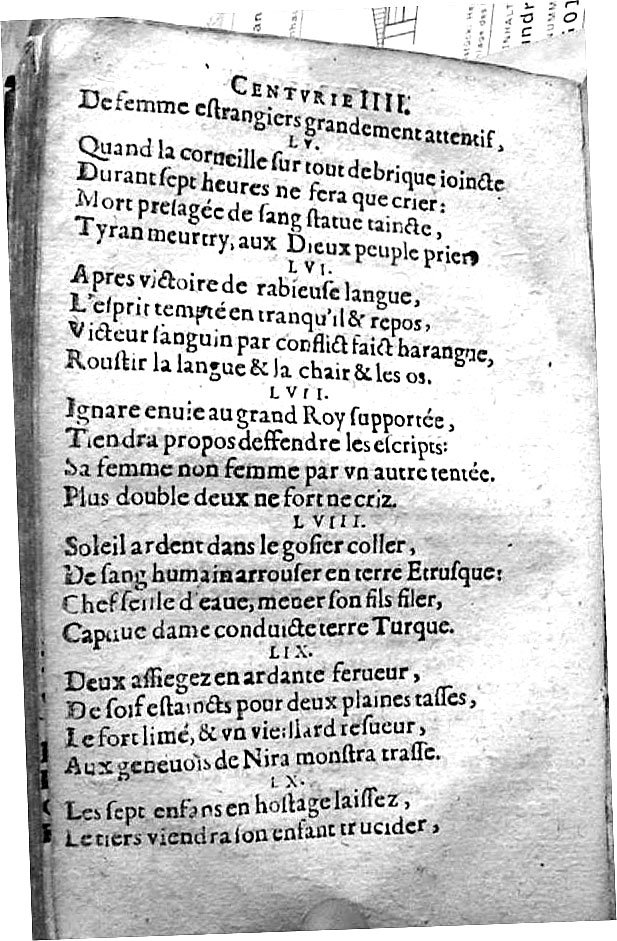 CENTVRIE IIII.
De femme eſtrangiers grandement attentif,
LV.
Quand la corneille ſur tout de brique ioincte
Durant ſept heures ne fera que crier:
Mort preſagée de ſang ſtatue taincte,
Tyran meurtry, aux Dieux peuple prier,
LVI.
Apres victoire de rabieuſe langue,
L'eſprit tempté en tranqu'il & repos,
Victeur ſanguin par conflict faict harangue,
Rouſtir la langue & la chair & les os.
LVII.
Ignare enuie au grand Roy ſupportée,
Tiendra propos deffendre les eſcripts:
Sa femme non femme par vn autre tentée.
Plus double deux ne fort ne criz.
LVIII.
Soleil ardent dans le goſier coller,
De ſang humain arrouſer en terre Etruſque:
Chef ſeille d'eaue, mener ſon fils filer,
Captiue dame conduicte terre Turque.
LIX.
Deux aſſiegez en ardante ferueur,
De ſoif eſtaincts pour deux plaines taſſes,
Le fort limé, & vn vieillard reſueur,
Aux geneuois de Nira monſtra traſſe.
LX.
Les ſept enfans en hoſtage laiſſez,
Le tiers viendra ſon enfant trucider,
INHALT